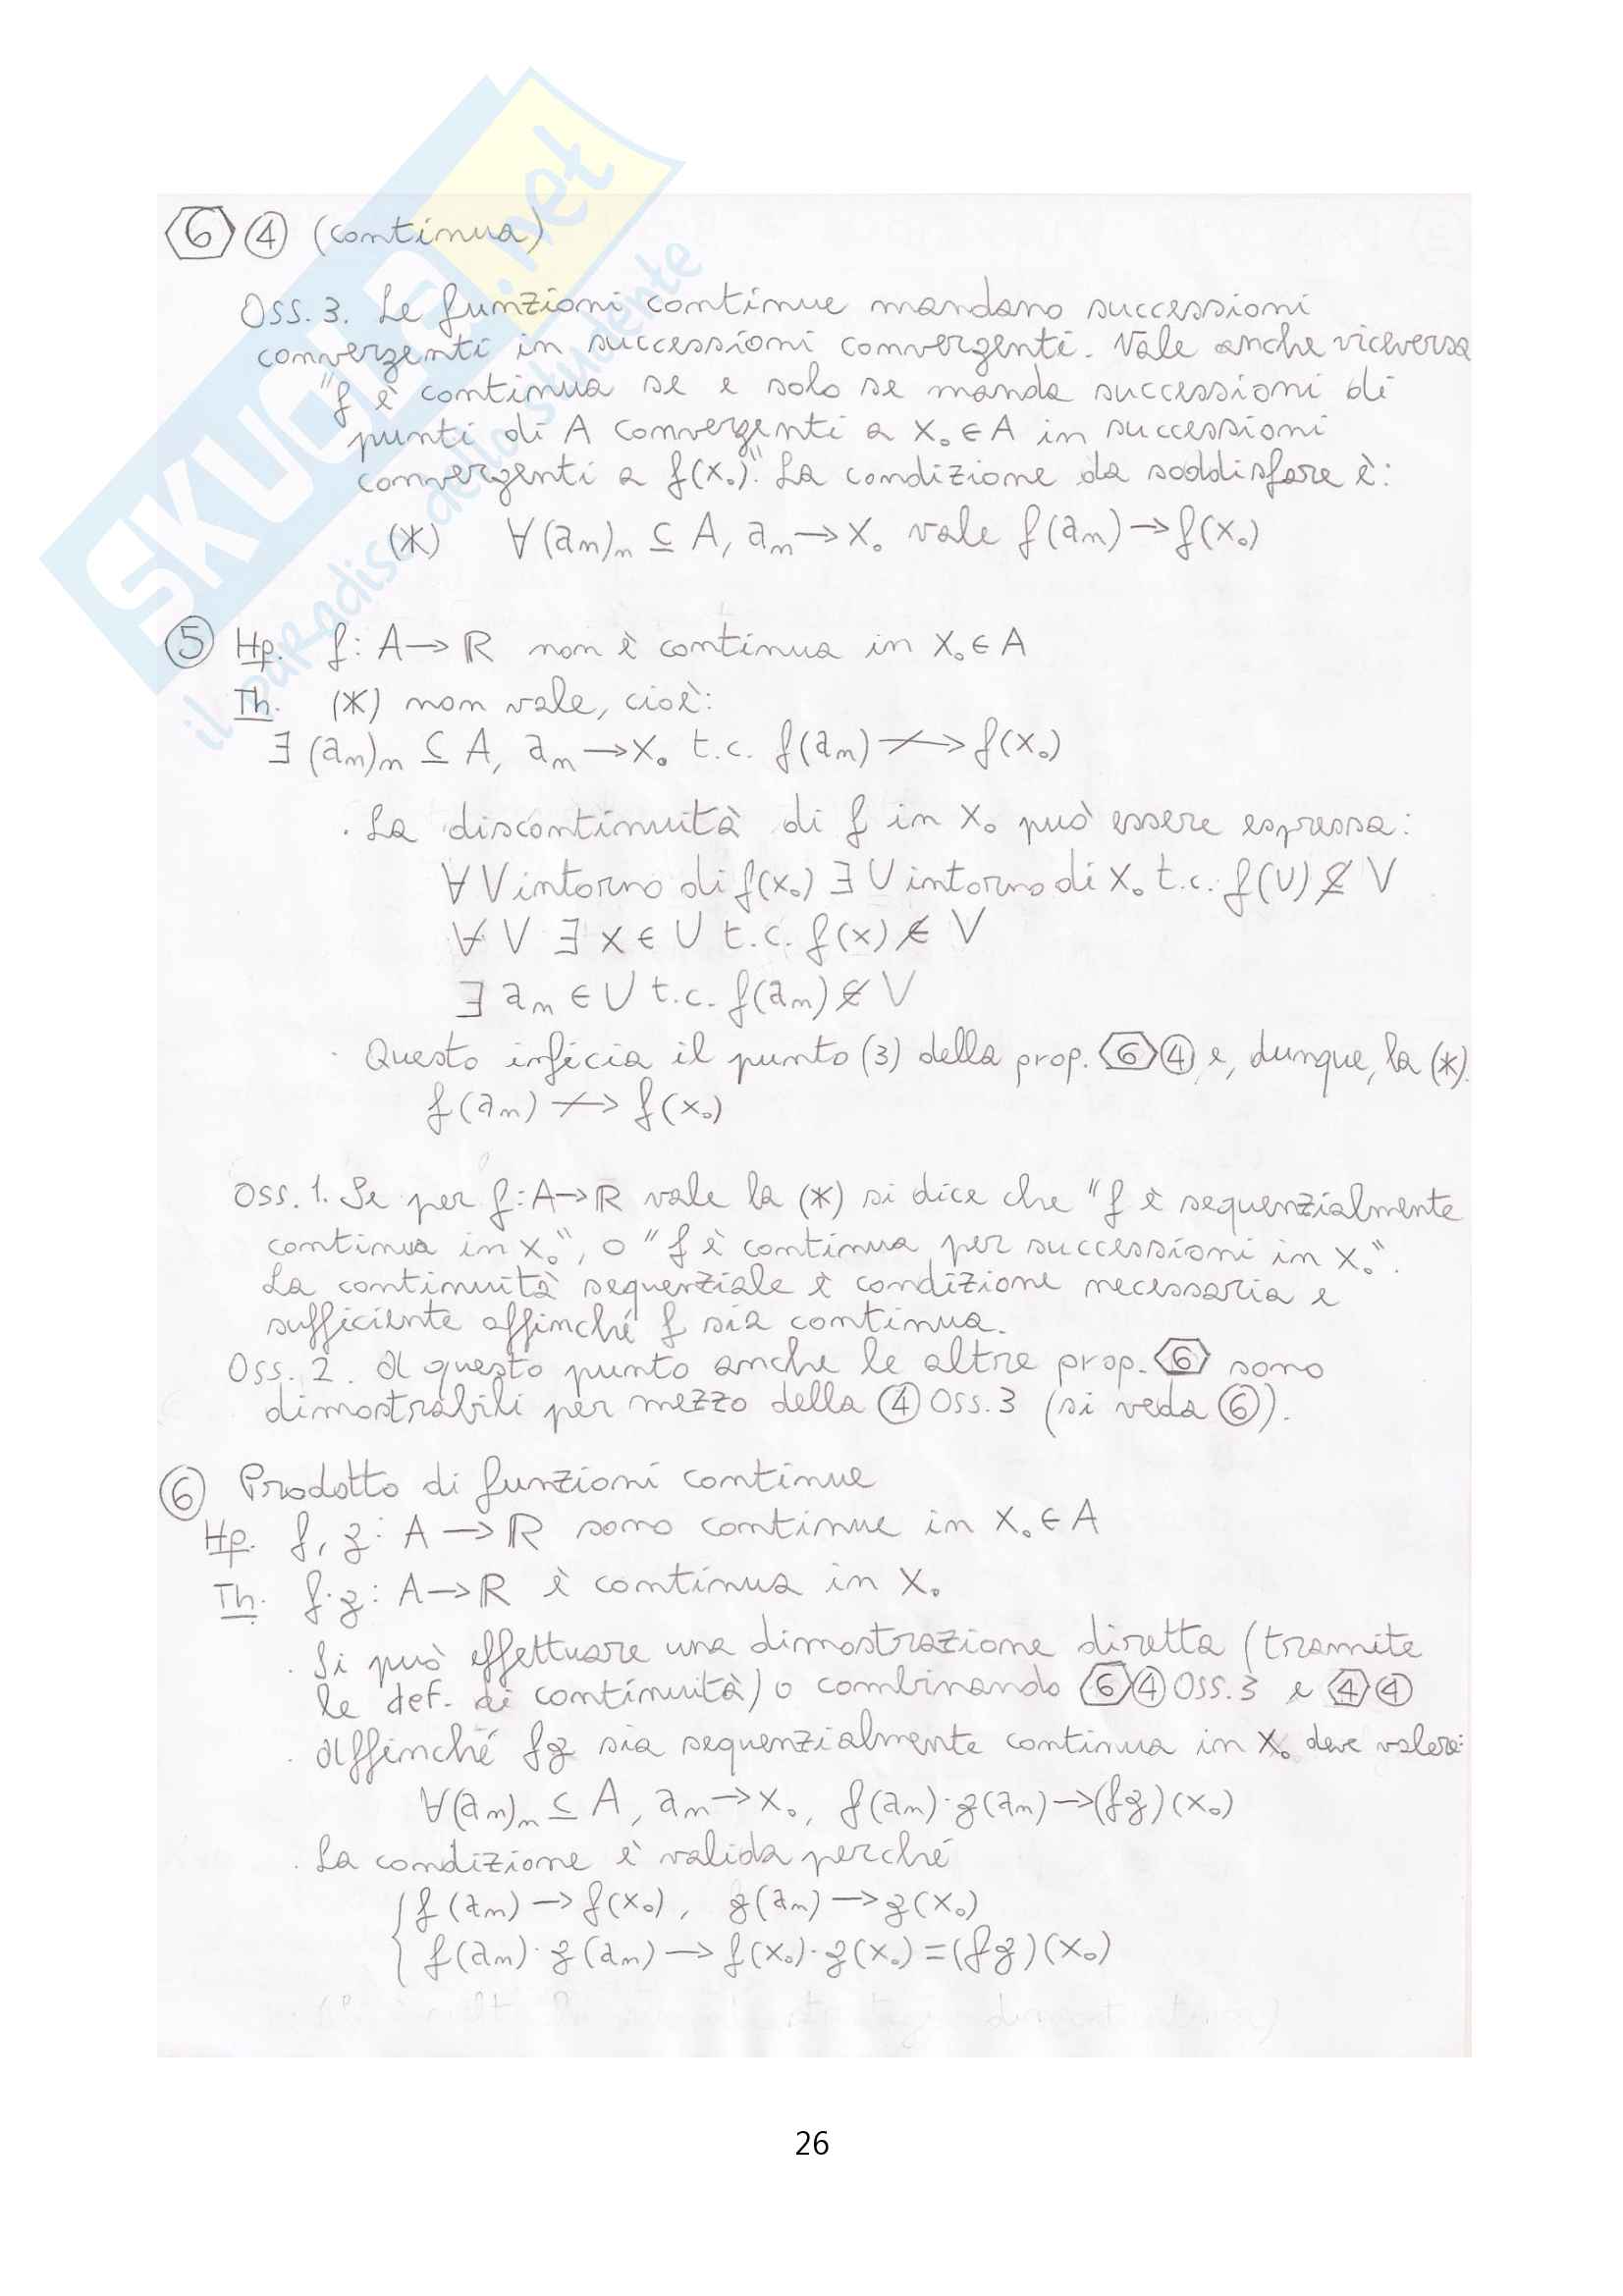 ⬡6 ④ (continua)
Oss. 3. Le funzioni continue mandano successioni
convergenti in successioni convergenti. Vale anche viceversa
"f è continua se e solo se manda successioni di
punti di A convergenti a x₀ ∈ A in successioni
convergenti a f(x₀)". La condizione da soddisfare è:
(*) ∀(aₙ)ₙ ⊆ A, aₙ → x₀ vale f(aₙ) → f(x₀)
⑤ Hp. f: A → ℝ non è continua in x₀ ∈ A
Th. (*) non vale, cioè:
∃ (aₙ)ₙ ⊆ A, aₙ → x₀ t.c. f(aₙ) ↛ f(x₀)
. La discontinuità di f in x₀ può essere espressa:
∀ V intorno di f(x₀) ∃ U intorno di x₀ t.c. f(U) ⊈ V
∀ V ∃ x ∈ U t.c. f(x) ∉ V
∃ aₙ ∈ U t.c. f(aₙ) ∉ V
. Questo inficia il punto (3) della prop. ⬡6 ④ e, dunque, la (*).
f(aₙ) ↛ f(x₀)
Oss. 1. Se per f: A → ℝ vale la (*) si dice che "f è sequenzialmente
continua in x₀", o "f è continua per successioni in x₀".
La continuità sequenziale è condizione necessaria e
sufficiente affinché f sia continua.
Oss. 2. A questo punto anche le altre prop. ⬡6 sono
dimostrabili per mezzo della ④ Oss. 3 (si veda ⑥).
⑥ Prodotto di funzioni continue
Hp. f, g: A → ℝ sono continue in x₀ ∈ A
Th. f·g: A → ℝ è continua in x₀
. Si può effettuare una dimostrazione diretta (tramite
le def. di continuità) o combinando ⬡6 ④ Oss. 3 e ⬡4 ④
. Affinché fg sia sequenzialmente continua in x₀ deve valere:
∀(aₙ)ₙ ⊆ A, aₙ → x₀, f(aₙ)·g(aₙ) → (fg)(x₀)
. La condizione è valida perché
{ f(aₙ) → f(x₀), g(aₙ) → g(x₀)
f(aₙ)·g(aₙ) → f(x₀)·g(x₀) = (fg)(x₀)
26
SKUOLA.net
il paradiso dello studente